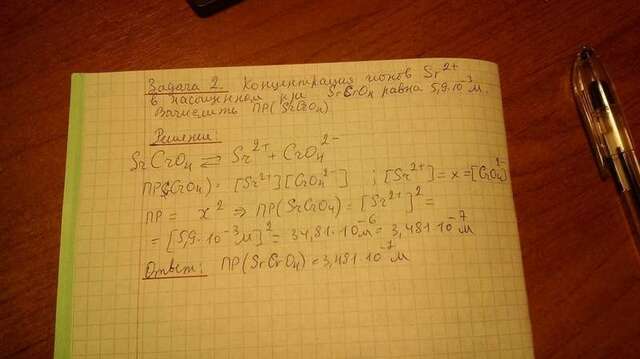 Задача 2. Концентрация ионов Sr²⁺
в насыщенном р-ре SrCrO₄ равна 5,9·10⁻³ м.
Вычислить ПР(SrCrO₄)
Решение:
SrCrO₄ ⇄ Sr²⁺ + CrO₄²⁻
ПР(SrCrO₄) = [Sr²⁺][CrO₄²⁻] ; [Sr²⁺] = x = [CrO₄²⁻]
ПР = x² ⇒ ПР(SrCrO₄) = [Sr²⁺]² =
= [5,9·10⁻³м]² = 34,81·10⁻⁶м = 3,481·10⁻⁷
Ответ: ПР(SrCrO₄) = 3,481·10⁻⁷ м